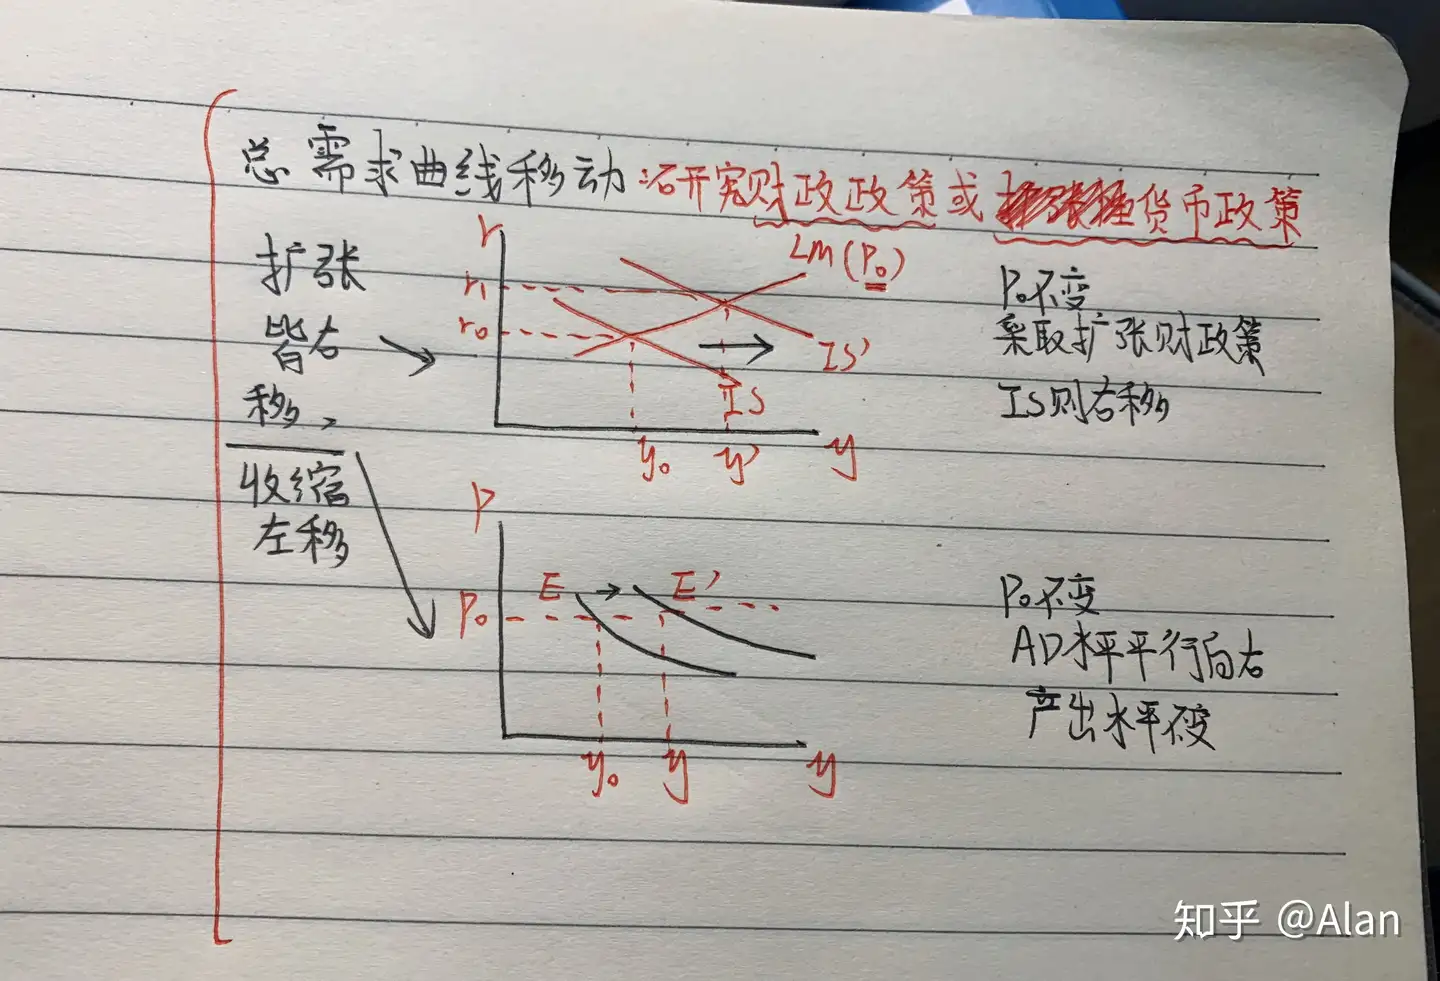 总需求曲线移动 研究财政政策或货币政策
扩张
皆右
移,
收缩
左移
r
r₁
r₀
LM(P₀)
IS'
IS
y₀
y'
y
P₀不变
采取扩张财政策
IS则右移
P
P₀
E
E'
y₀
y
y
P₀不变
AD水平平行向右
产出水平不变
知乎 @Alan